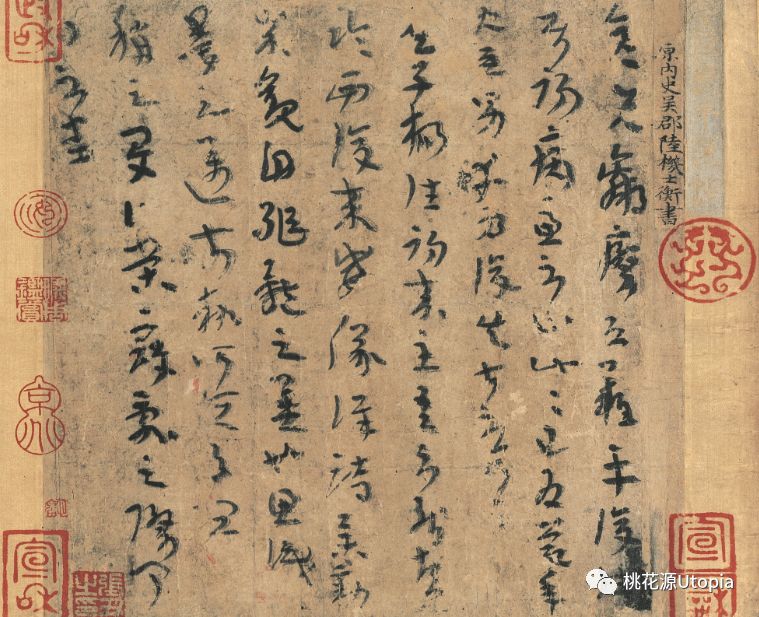 原內史吳郡陸機士衡書
彥先羸瘵恐難平復
往屬初病慮不止此此已為慶承
使唯男幸為復失前憂耳
吳子楊往初來主吾不能盡
臨西復來威儀詳跱舉動
成觀自軀體之美也思識
量之邁前執所恒有宜
稱之夏伯榮寇亂之際聞
問不悉
政和
宣和
宣和
桃花源Utopia